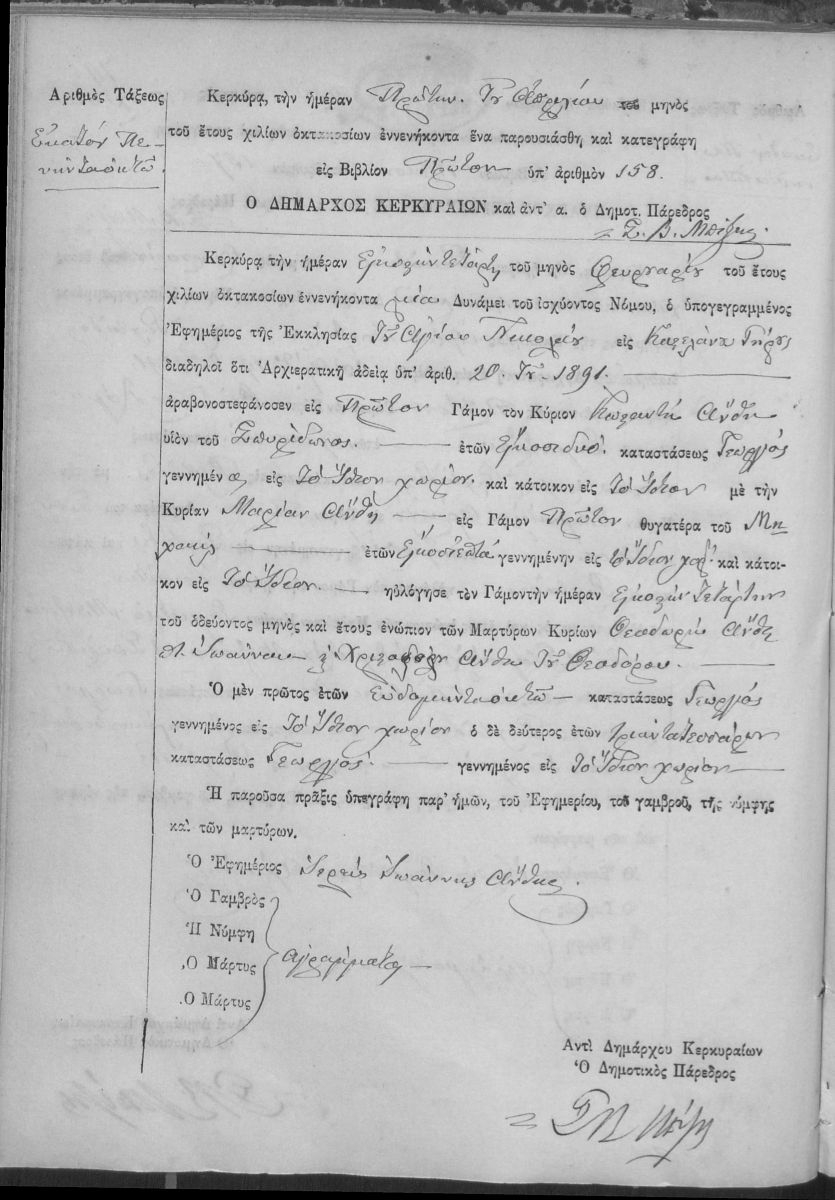 Ἀριθμὸς Τάξεως
Ἑκατὸν Πε-
νῆντα ὀκτὼ.
Κερκύρᾳ, τὴν ἡμέραν Πρώτην. Τοῦ Ἀπριλίου τοῦ μηνὸς
τοῦ ἔτους χιλίων ὀκτακοσίων ἐννενήκοντα ἕνα παρουσιάσθη καὶ κατεγράφη
εἰς Βιβλίον Πρῶτον ὑπ' ἀριθμὸν 158.
Ο ΔΗΜΑΡΧΟΣ ΚΕΡΚΥΡΑΙΩΝ καὶ ἀντ' α. ὁ Δημοτ. Πάρεδρος
Σ. Β.
Κερκύρᾳ τὴν ἡμέραν Εἰκοστὴν τετάρτη τοῦ μηνὸς Φευρουαρίου τοῦ ἔτους
χιλίων ὀκτακοσίων ἐννενήκοντα μία Δυνάμει τοῦ ἰσχύοντος Νόμου, ὁ ὑπογεγραμμένος
Ἐφημέριος τῆς Ἐκκλησίας Τοῦ Ἁγίου Νικολάου εἰς Καστελάνους Γύρου
διαδηλοῖ ὅτι Ἀρχιερατικῇ ἀδείᾳ ὑπ' ἀριθ. 20. Τοῦ 1891.
ἀραβονοστεφάνοσεν εἰς Πρῶτον Γάμον τὸν Κύριον Κωσταντή Ἀνθη
υἱὸν τοῦ Σπυρίδωνος. ἐτῶν Εἴκοσι δυό. καταστάσεως Γεωργὸς
γεννημένος εἰς Τὸ Ἴδιον χωρίον. καὶ κάτοικον εἰς Τὸ Ἴδιον μὲ τὴν
Κυρίαν Μαρίαν Ἀνθη εἰς Γάμον Πρῶτον θυγατέρα τοῦ Μη
χαήλ ἐτῶν Εἰκοσιεπτά γεννημένην εἰς τὸ Ἴδιον χορ. καὶ κάτοι-
κον εἰς Τὸ Ἴδιον. ηὐλόγησε τὸν Γάμον τὴν ἡμέραν Εἰκοστὴν Τετάρτην
τοῦ ὁδεύοντος μηνὸς καὶ ἔτους ἐνώπιον τῶν Μαρτύρων Κυρίων Θεοδωρή Ἀνθη
Ἰωάννου Ἀνθη Τοῦ Θεοδόρου.
Ὁ μὲν πρῶτος ἐτῶν Εὐδομήντα ὀκτὼ καταστάσεως Γεωργὸς
γεννημένος εἰς Τὸ Ἴδιον χωρίον ὁ δὲ δεύτερος ἐτῶν τριάντα τεσσάρων
καταστάσεως Γεωργὸς. γεννημένος εἰς Τὸ Ἴδιον χωρίον
Ἡ παροῦσα πρᾶξις ὑπεγράφη παρ' ἡμῶν, τοῦ Ἐφημερίου, τοῦ γαμβροῦ, τῆς νύμφης
καὶ τῶν μαρτύρων.
Ὁ Ἐφημέριος Ἱερεὺς Ἰωάννης Ἀνθης.
Ὁ Γαμβρὸς
Ἡ Νύμφη
Ὁ Μάρτυς Ἀγράμματοι
Ὁ Μάρτυς
Ἀντὶ Δημάρχου Κερκυραίων
Ὁ Δημοτικὸς Πάρεδρος